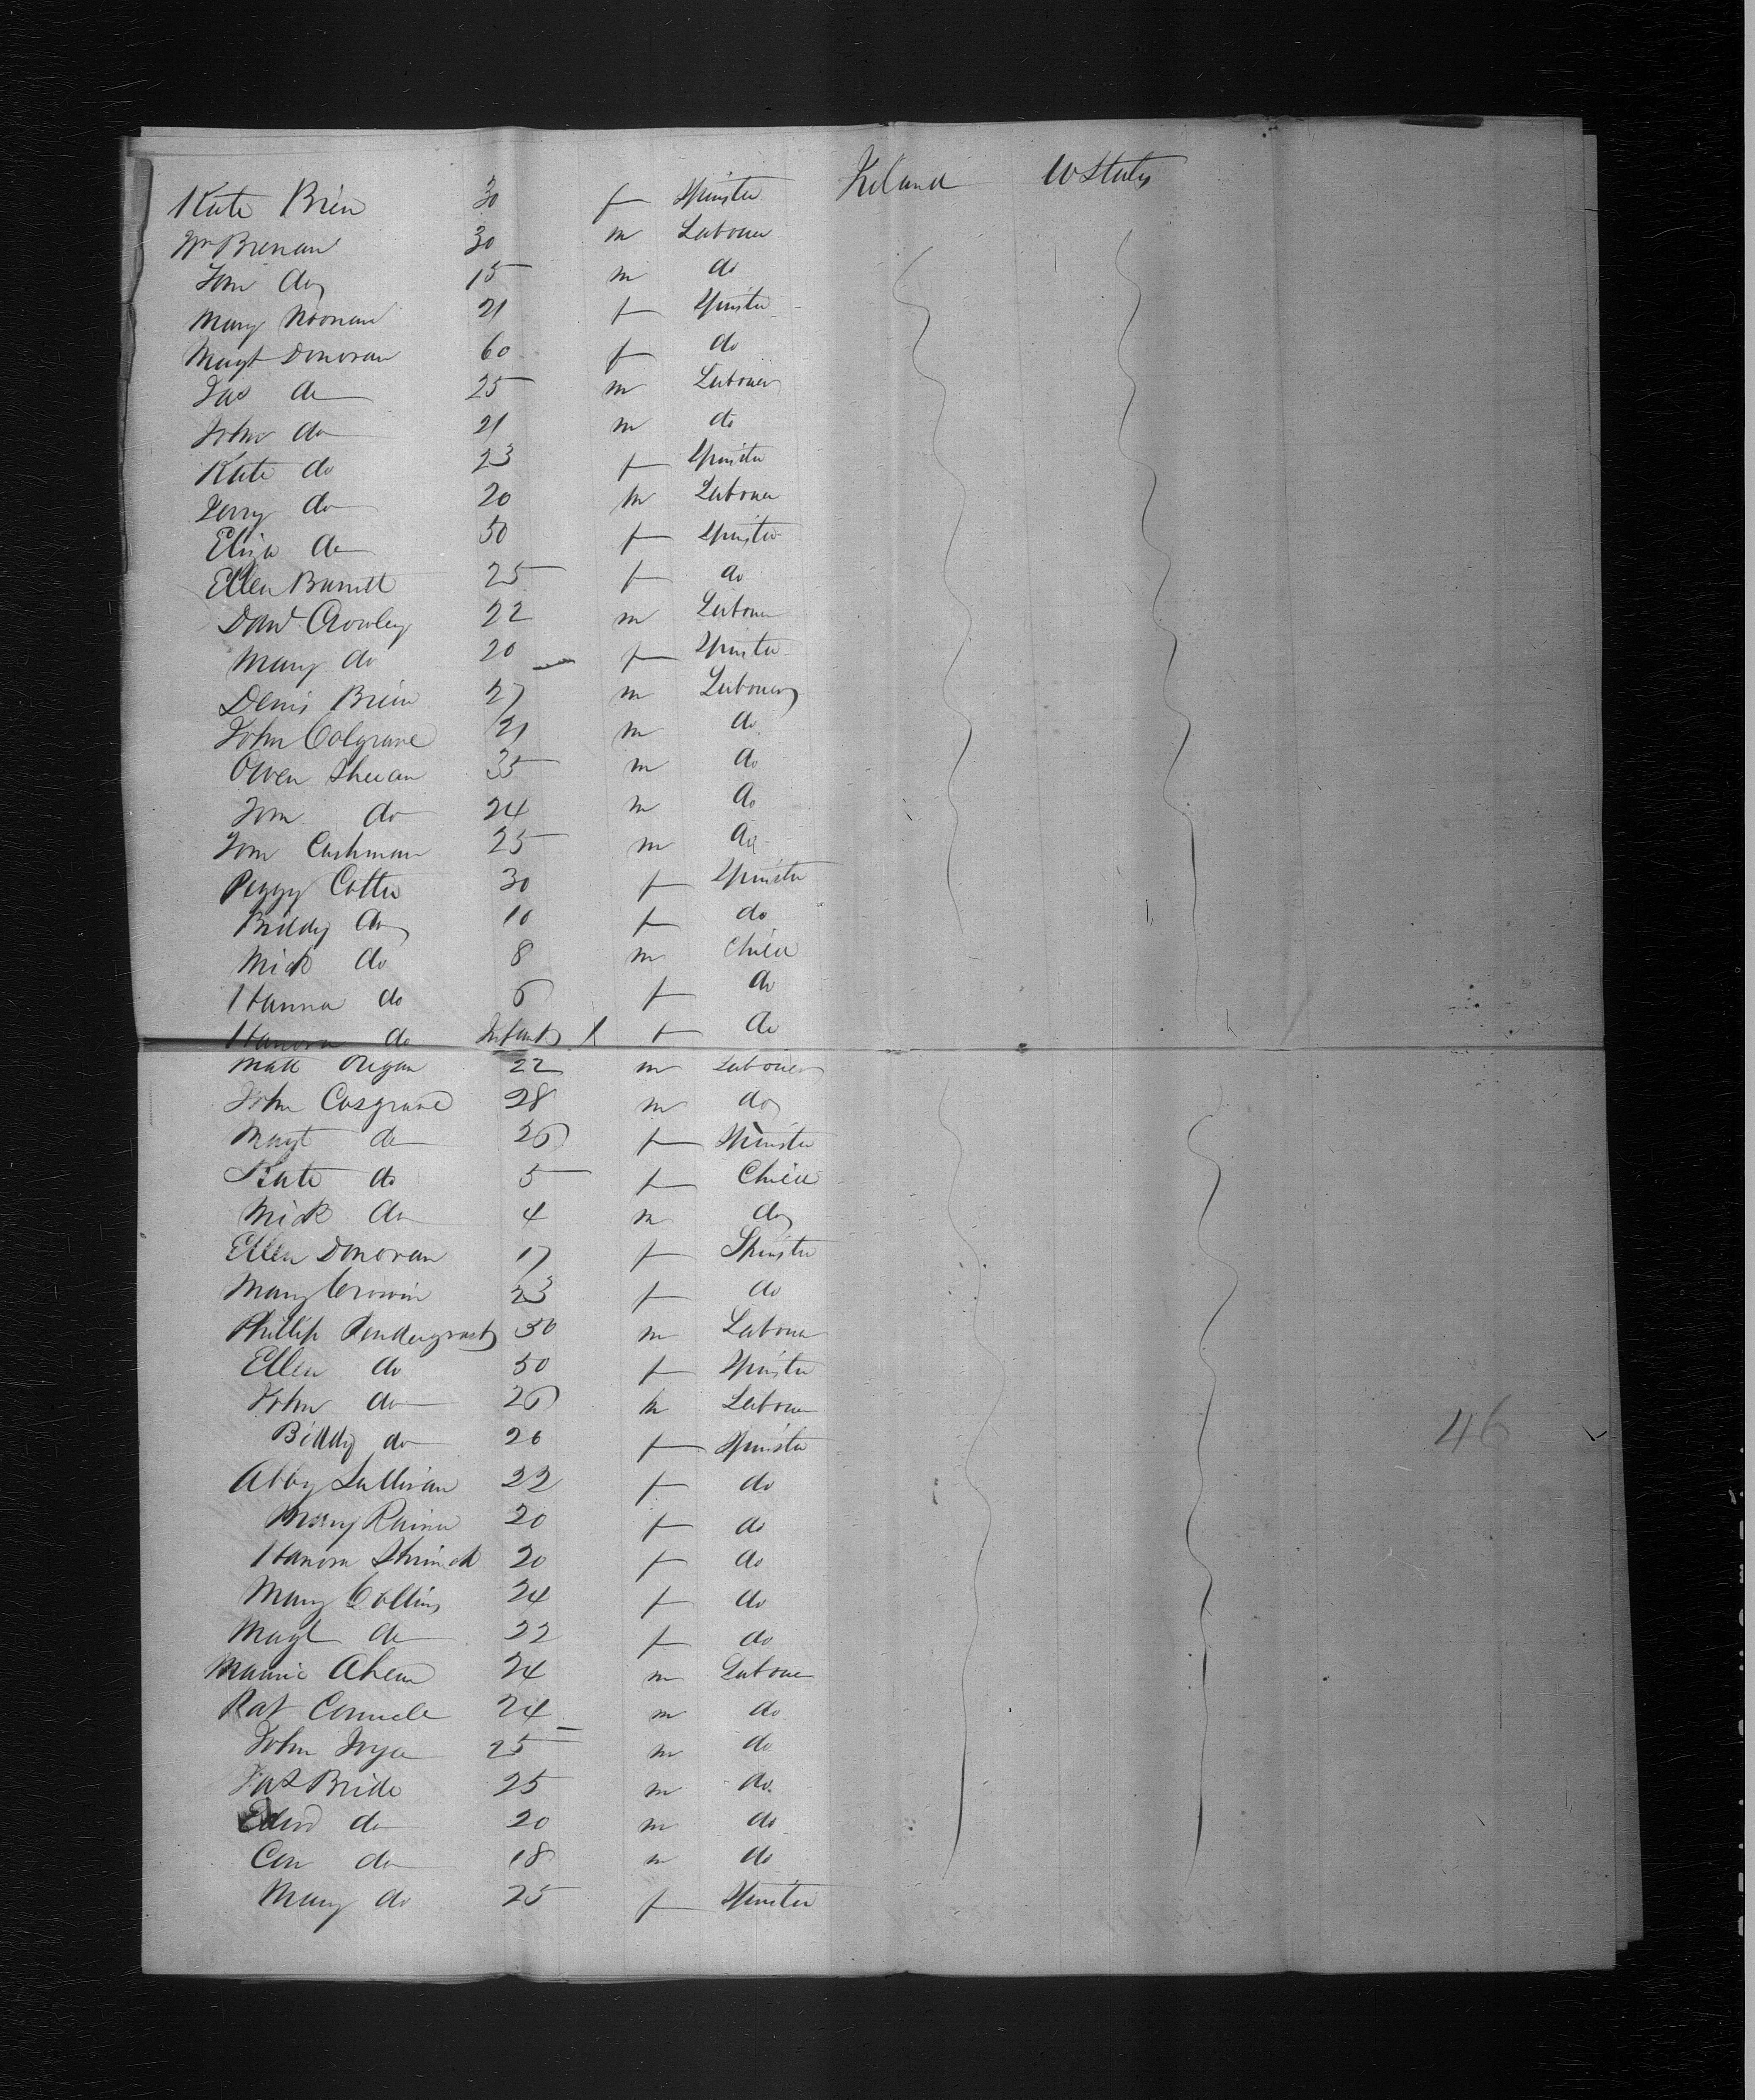 Kate Brien 30 f Spinster Ireland U States
Wm Brenan 30 m Labourer
Tom do 15 m do
Mary Noonan 21 f Spinster
Margt Donovan 60 f do
Jas do 25 m Labourer
John do 21 m do
Kate do 23 f Spinster
Jerry do 20 m Labourer
Eliza do 50 f Spinster
Ellen Barrett 25 f do
Danl Crowley 22 m Labourer
Mary do 20 f Spinster
Denis Brien 27 m Labourer
John Colgrave 21 m do
Owen Sheean 35 m do
Tom do 24 m do
Tom Cushman 25 m do
Peggy Cotter 30 f Spinster
Biddy do 10 f do
Mick do 8 m Child
Hanna do 6 f do
Hanora do Infant f do
Matt Oregan 22 m Labourer
John Cosgrave 28 m do
Margt do 26 f Spinster
Kate do 5 f Child
Mick do 4 m do
Ellen Donovan 17 f Spinster
Mary Cronin 23 f do
Phillip Pendergrast 50 m Labourer
Ellen do 50 f Spinster
John do 26 m Labourer
Biddy do 26 f Spinster
46
Abby Sullivan 22 f do
Mary 20 f do
Hanora 20 f do
Mary Collins 24 f do
Margt do 22 f do
Maurice Ahern 24 m Labourer
Pat Connell 24 m do
John 25 m do
Jas Bride 25 m do
Edwd do 20 m do
Con do 18 m do
Mary do 25 f Spinster